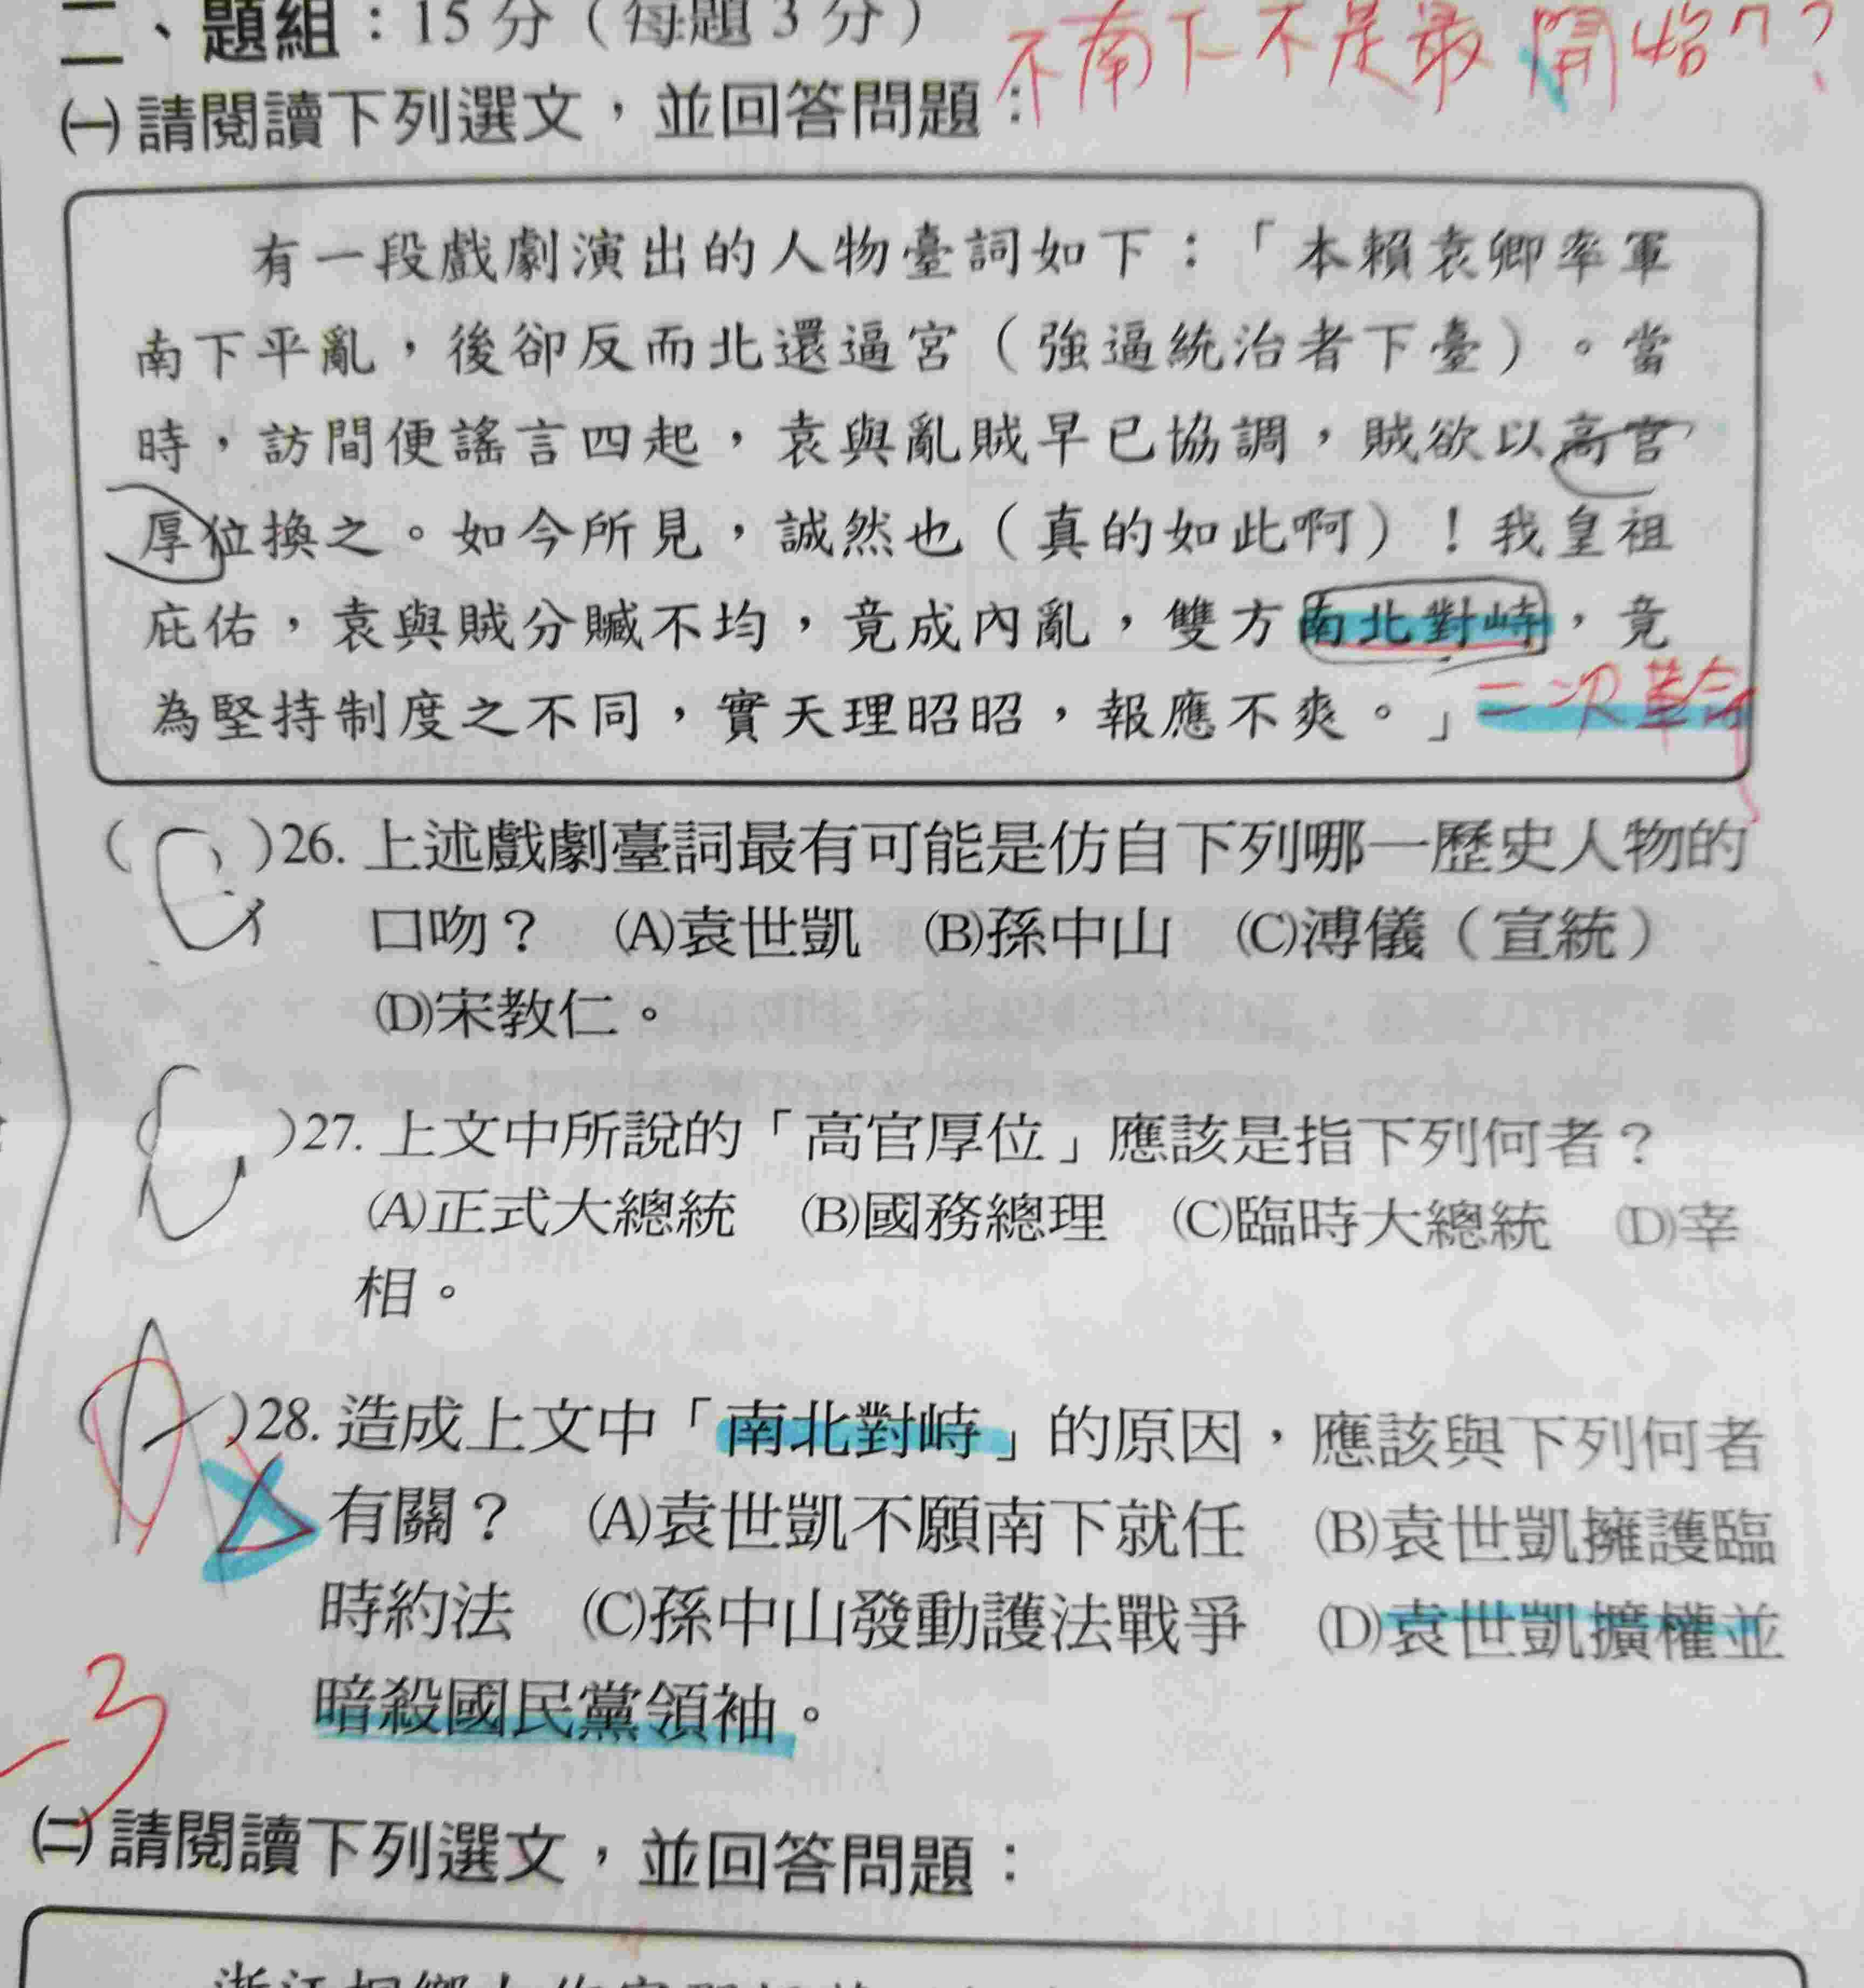 二、題組：15分（每題3分）
不南下不是最開始ㄇ？
㈠請閱讀下列選文，並回答問題：
有一段戲劇演出的人物臺詞如下：「本賴袁卿率軍
南下平亂，後卻反而北還逼宮（強逼統治者下臺）。當
時，訪間便謠言四起，袁與亂賊早已協調，賊欲以高官
厚位換之。如今所見，誠然也（真的如此啊）！我皇祖
庇佑，袁與賊分贓不均，竟成內亂，雙方南北對峙，竟
為堅持制度之不同，實天理昭昭，報應不爽。」
二次革命
(C)26. 上述戲劇臺詞最有可能是仿自下列哪一歷史人物的
口吻？ (A)袁世凱 (B)孫中山 (C)溥儀（宣統）
(D)宋教仁。
(C)27. 上文中所說的「高官厚位」應該是指下列何者？
(A)正式大總統 (B)國務總理 (C)臨時大總統 (D)宰
相。
(A)28. 造成上文中「南北對峙」的原因，應該與下列何者
有關？ (A)袁世凱不願南下就任 (B)袁世凱擁護臨
時約法 (C)孫中山發動護法戰爭 (D)袁世凱擴權並
暗殺國民黨領袖。
-3
㈡請閱讀下列選文，並回答問題：